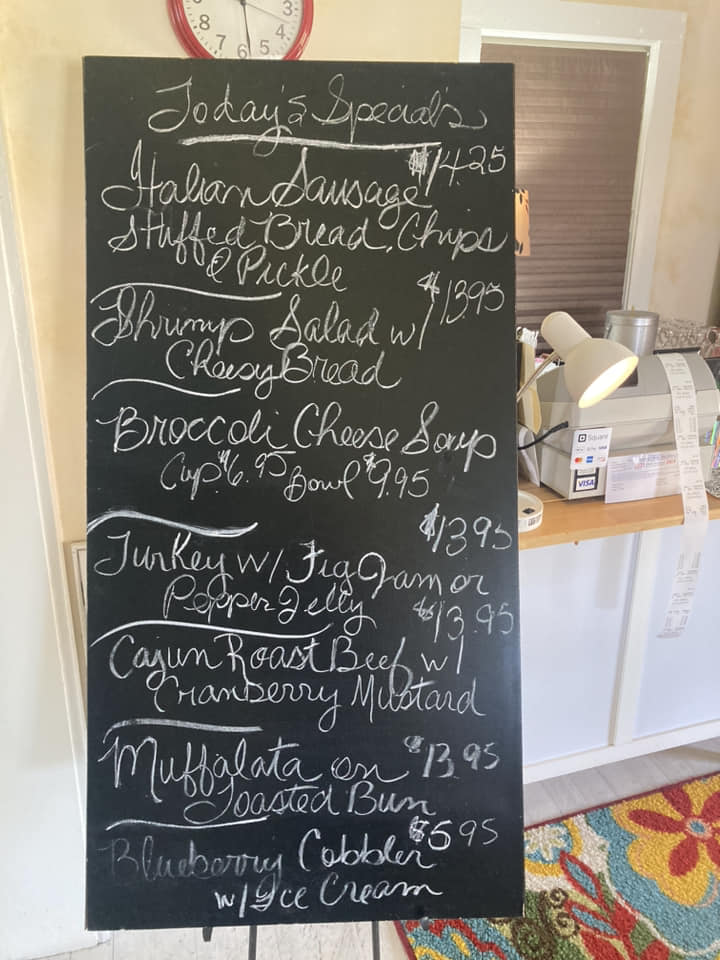 3
8
4
7
6
5
Today's Specials
$14.25
Italian Sausage
Stuffed Bread, Chips
& Pickle
$13.95
Shrimp Salad w/
Cheesy Bread
Broccoli Cheese Soup
Cup $6.95 Bowl $9.95
$13.95
Turkey w/ Fig Jam or
Pepper Jelly
$13.95
Cajun Roast Beef w/
Cranberry Mustard
Muffalata on $13.95
Toasted Bun
$5.95
Blueberry Cobbler
w/ Ice Cream
Square
VISA